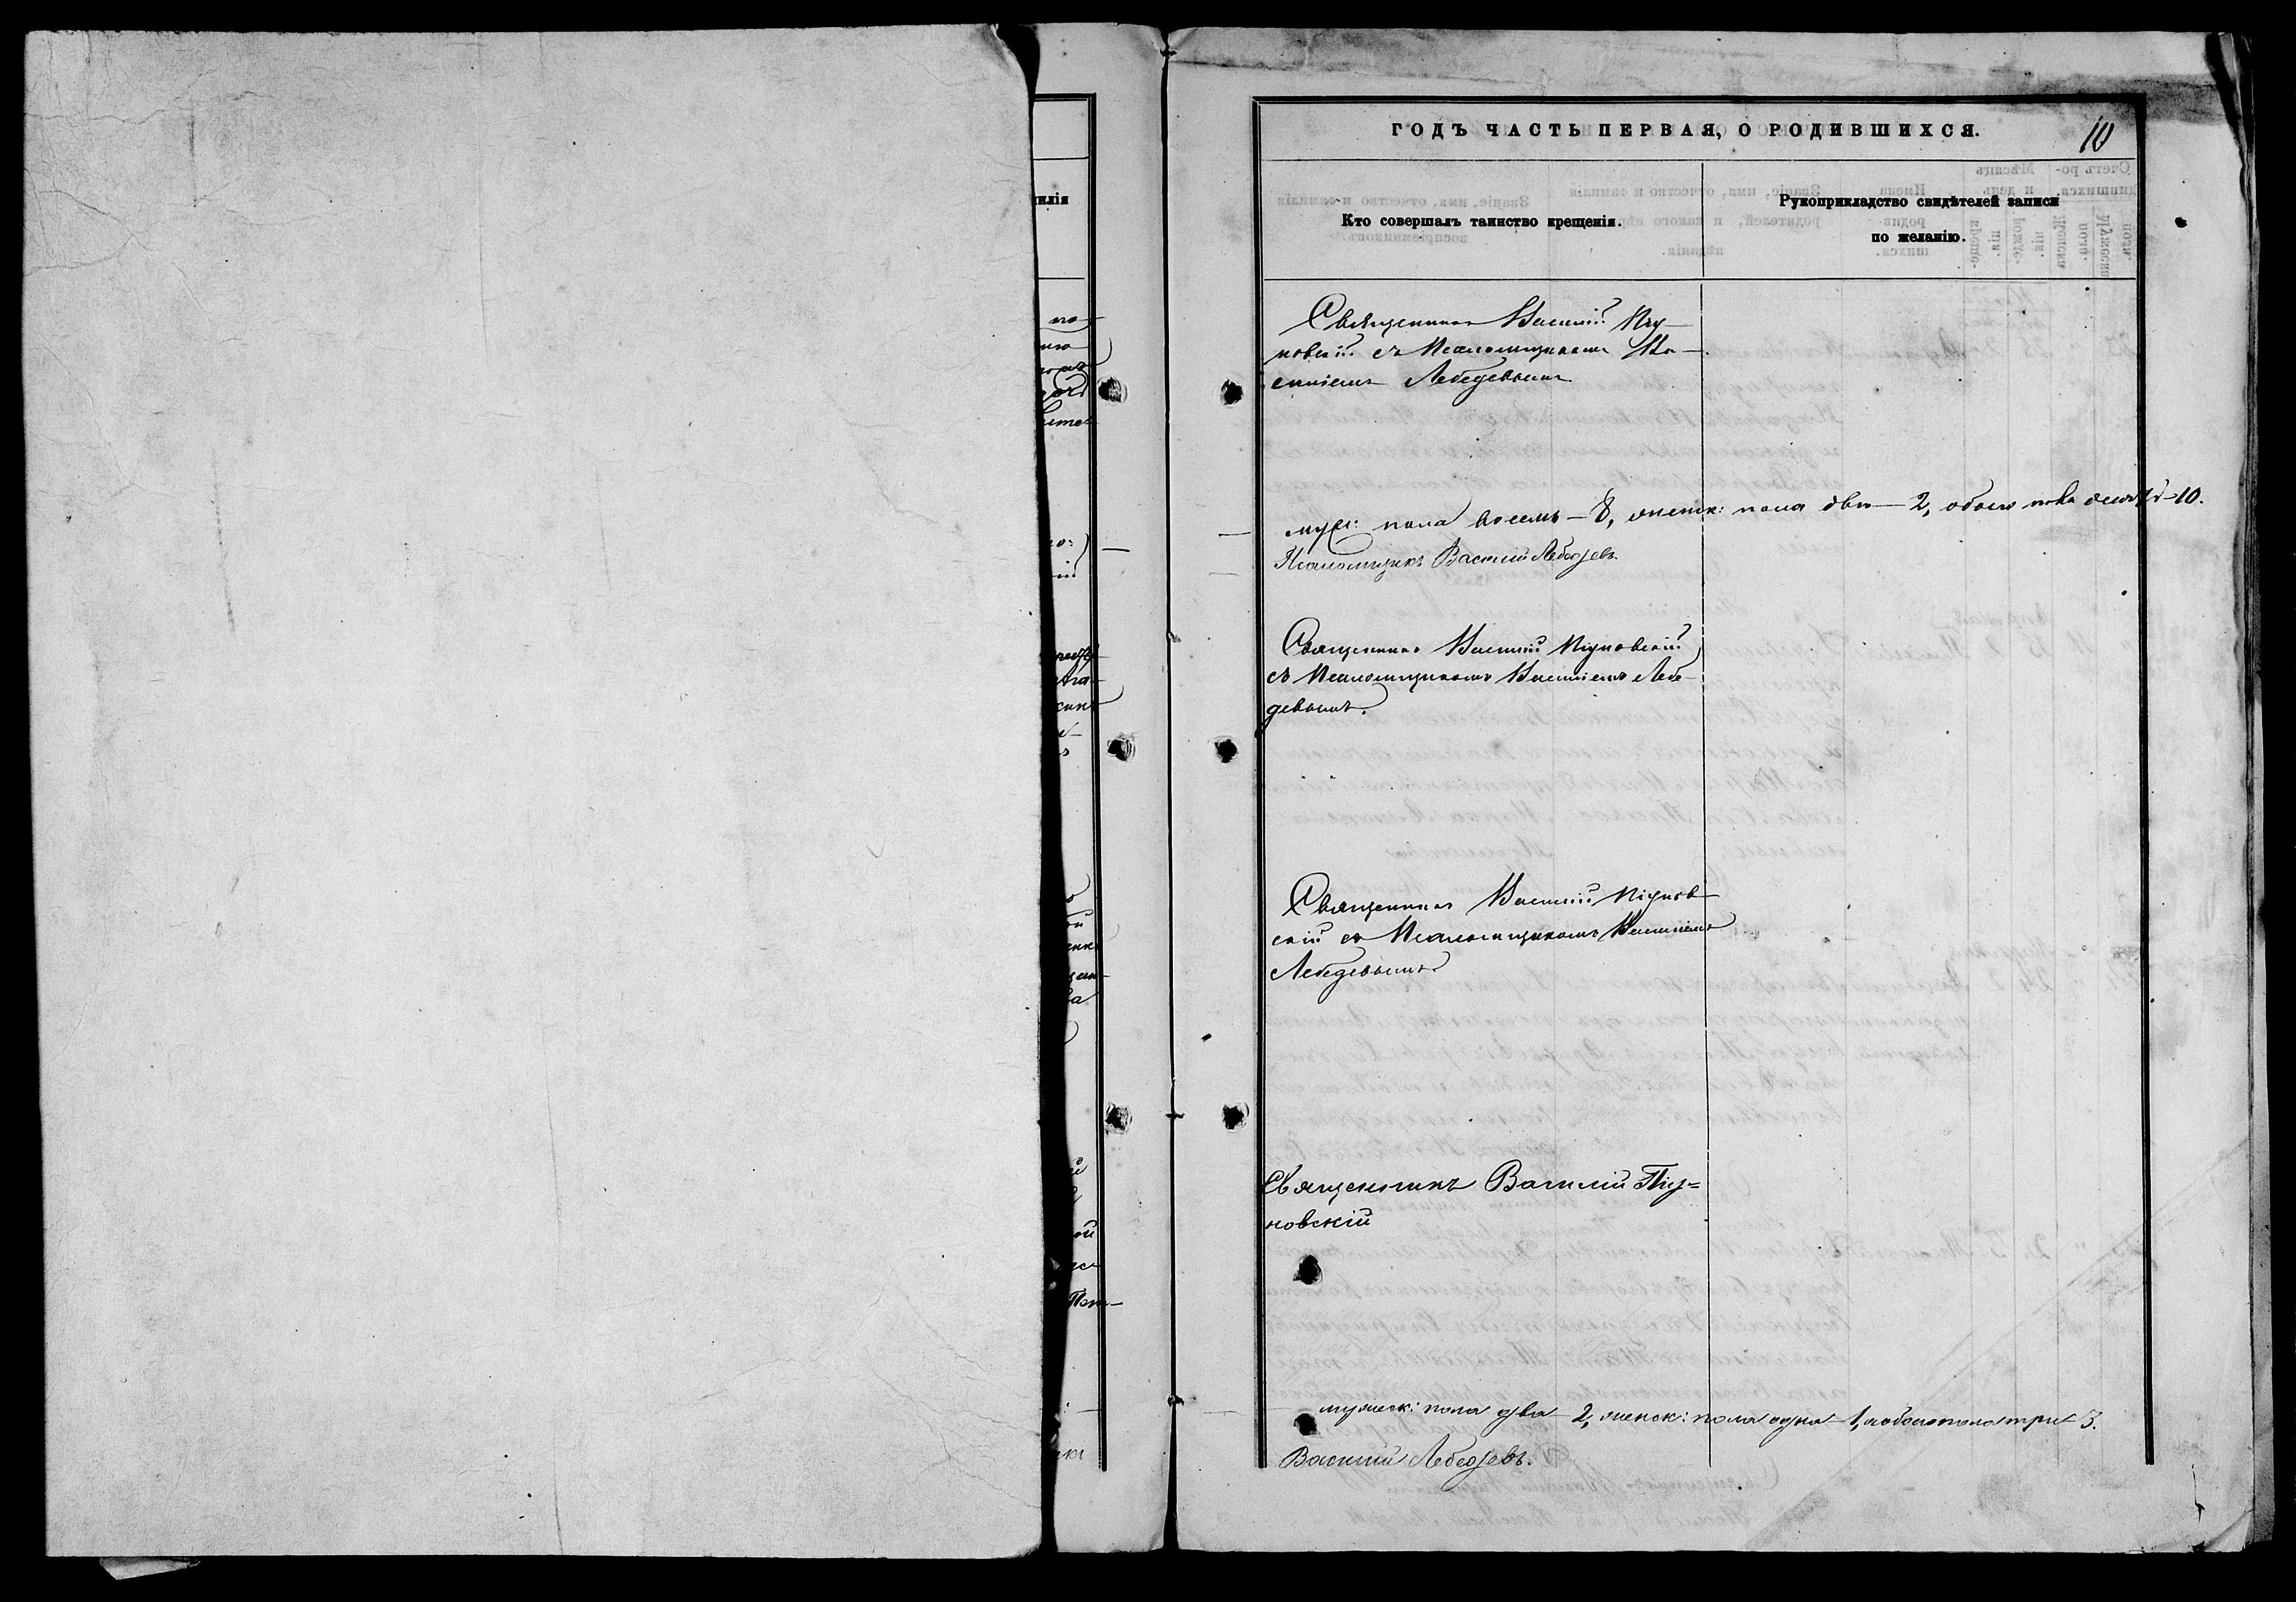 ГОДЪ ЧАСТЬ ПЕРВАЯ, О РОДИВШИХСЯ.
10
Кто совершалъ таинство крещенія.
Рукоприкладство свидѣтелей записи
по желанію.
Священникъ Василій Пiу-
новскій съ Псаломщикомъ Ва-
силіемъ Лебедевымъ
муж: пола восемь - 8, женск: пола два - 2, обоего пола десять - 10.
Псаломщикъ Василій Лебедевъ.
Священникъ Василій Пiуновскій
съ Псаломщикомъ Василіемъ Лебе-
девымъ.
Священникъ Василій Пiунов-
скій съ Псаломщикомъ Василіемъ
Лебедевымъ
Священникъ Василій Пiу=
новскій
мужеск: пола два 2, женск: пола одна 1, а обоего пола три 3.
Василій Лебедевъ.